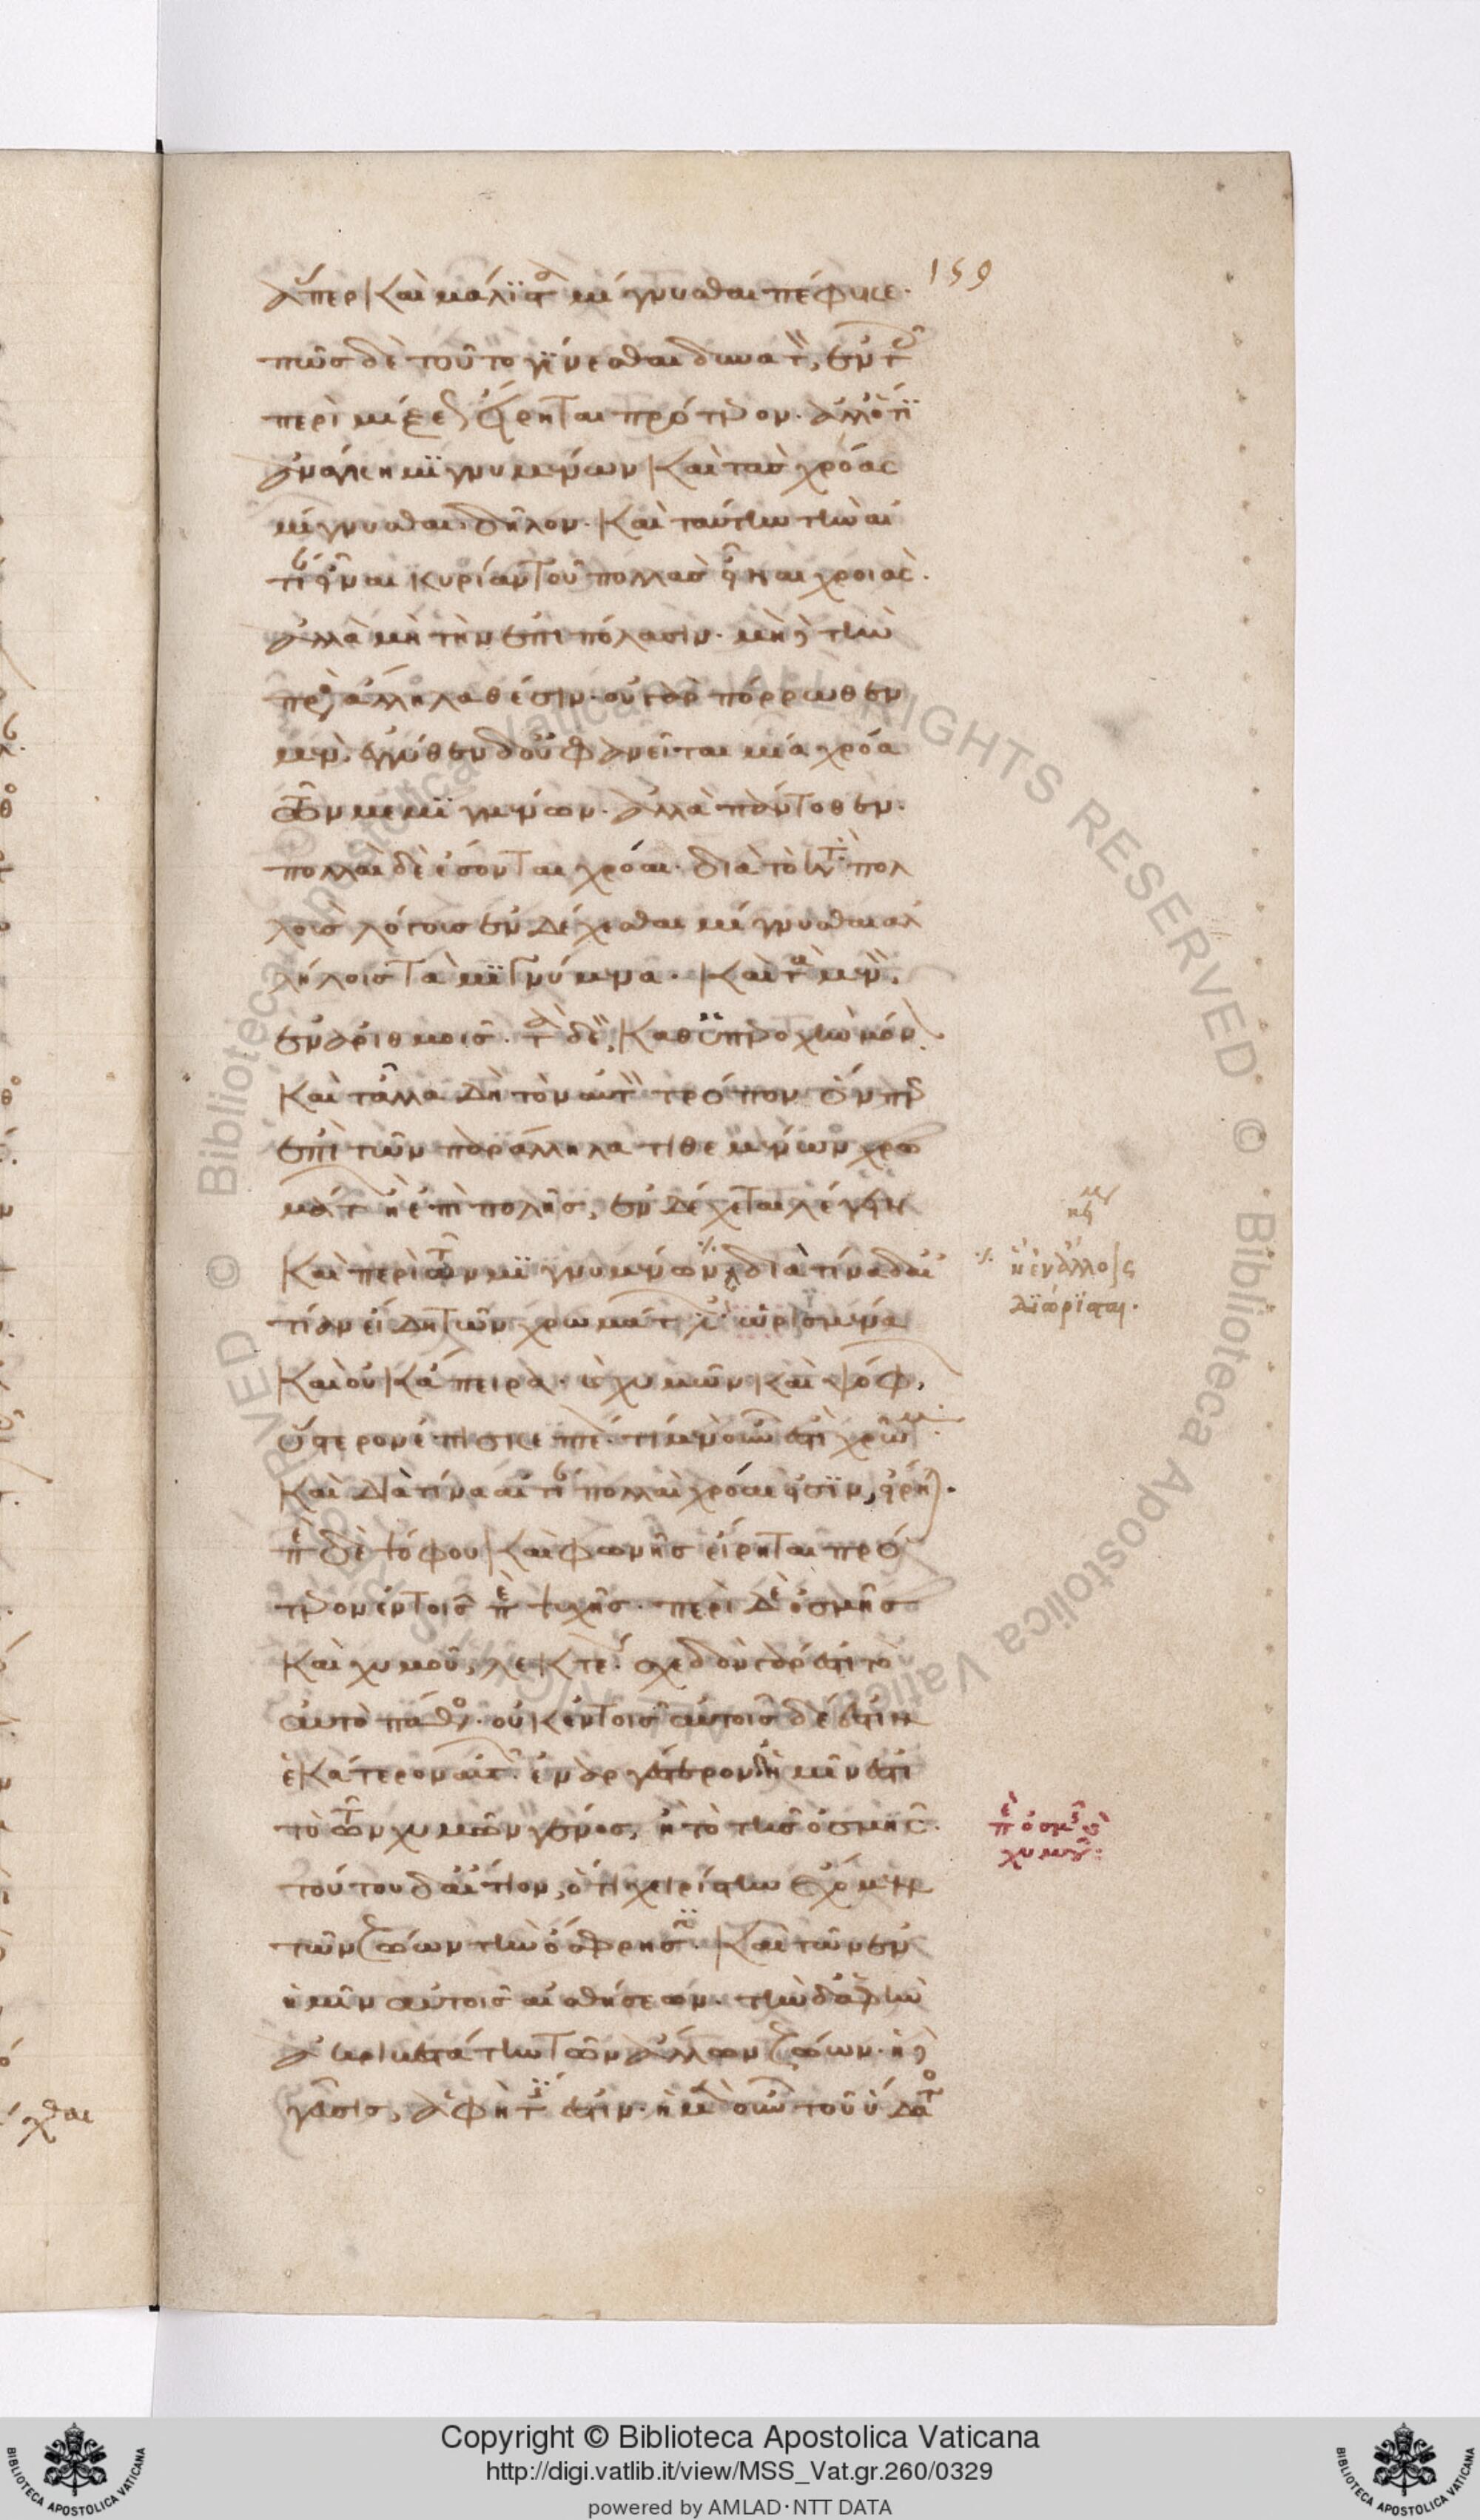 159
ἅπερ καὶ μάλιστα μίγνυσθαι πέφυκε.
πῶς δὲ τοῦτο γίνεσθαι δυνατὸν, ἐν τοῖς
περὶ μίξεως εἴρηται πρότερον. ἀλλ' ὅτι
ἀνάγκη μιγνυμένων καὶ τὰς χρόας
μίγνυσθαι δῆλον. καὶ ταύτην τὴν αἰ
τίαν εἶναι κυρίαν τοῦ πολλὰς εἶναι χροιάς.
ἀλλὰ μὴ τὴν ἐπιπόλασιν. μηδὲ τὴν
πρὸς ἄλληλα θέσιν. οὐ γὰρ πόρρωθεν
μὲν, ἐγγύθεν δ' οὒ φανεῖται μία χρόα
τῶν μεμιγμένων. ἀλλὰ πάντοθεν.
πολλαὶ δὲ ἔσονται χρόαι. διὰ τὸ κατὰ πολ
λοὺς λόγους ἐνδέχεσθαι μίγνυσθαι ἀλ
λήλοις τὰ μιγνύμενα. καὶ τὰ μὲν,
ἐν ἀριθμοῖς. τὰ δὲ, καθ' ὑπεροχὴν μόνον.
καὶ τἆλλα δὴ τὸν αὐτὸν τρόπον ὅνπερ
ἐπὶ τῶν παράλληλα τιθεμένων χρω
μάτων ἢ ἐπιπολῆς, ἐνδέχεται λέγειν
καὶ περὶ τῶν μιγνυμένων ⁒ διὰ τίνα δ' αἰ
τίαν εἴδη τῶν χρωμάτων ἐστὶν ὡρισμένα
καὶ οὐκ ἄπειρα. καὶ χυμῶν καὶ ψόφων,
ὕστερον ἐπισκεπτέον. τί μὲν οὖν ἐστι χρῶμα.
καὶ διὰ τίνα αἰτίαν πολλαὶ χρόαι εἰσὶν, εἴρηται.
περὶ δὲ ψόφου καὶ φωνῆς εἴρηται πρό
τερον ἐν τοῖς περὶ ψυχῆς. περὶ δὲ ὀσμῆς
καὶ χυμοῦ, λεκτέον. σχεδὸν γάρ ἐστι τὸ
αὐτὸ πάθος. οὐκ ἐν τοῖς αὐτοῖς δέ ἐστιν
ἑκάτερον αὐτῶν. ἐναργέστερον δὲ ἡμῖν ἐστι
τὸ τῶν χυμῶν γένος, ἢ τὸ τῆς ὀσμῆς.
τούτου δ' αἴτιον, ὅτι χειρίστην ἔχομεν
τῶν ζώων τὴν ὄσφρησιν. καὶ τῶν ἐν
ἡμῖν αὐτοῖς αἰσθήσεων. τὴν δ' ἁφὴν
ἀκριβεστάτην τῶν ἄλλων ζώων. ἡ δὲ
γεῦσις, ἁφή τις ἐστίν. ἡ μὲν οὖν τοῦ ὕδατος
⁒ ἢ ἐν ἄλλοις
διώρισται.
περὶ ὀσμῆς καὶ
χυμοῦ:
Copyright © Biblioteca Apostolica Vaticana
http://digi.vatlib.it/view/MSS_Vat.gr.260/0329
powered by AMLAD·NTT DATA